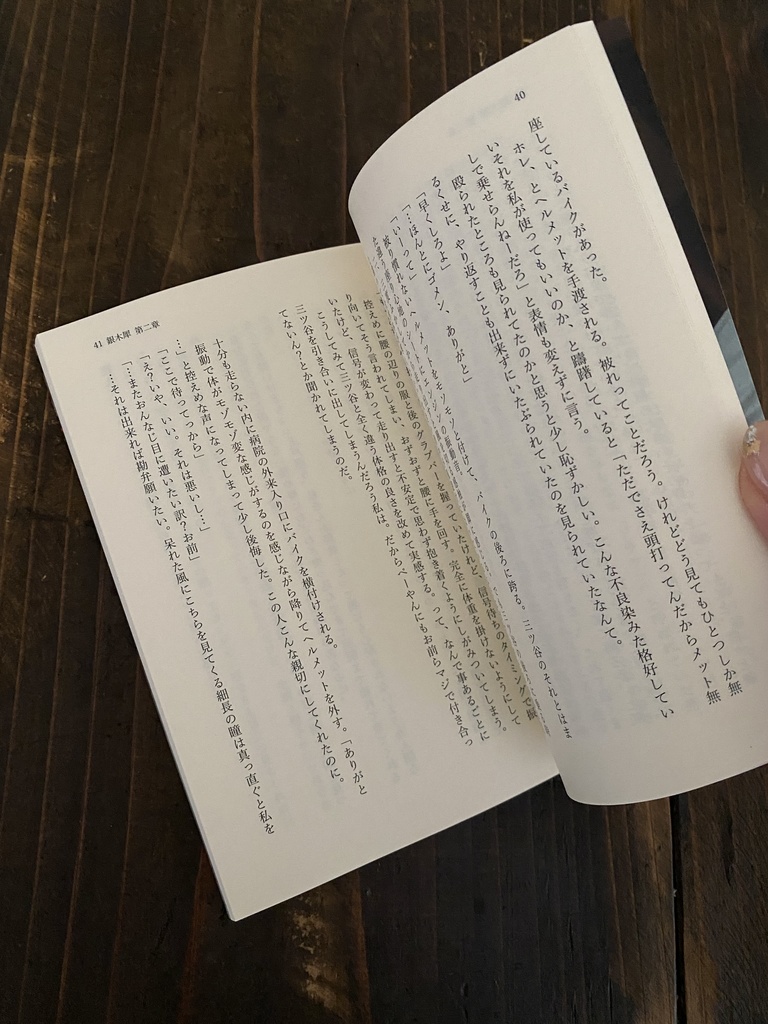 40
座しているバイクがあった。
ホレ、とヘルメットを手渡される。被れってことだろう。けれどどう見てもひとつしか無
いそれを私が使ってもいいのか、と躊躇していると「ただでさえ頭打ってんだからメット無
しで乗せらんねーだろ」と表情も変えずに言う。
殴られたところも見られてたのかと思うと少し恥ずかしい。こんな不良染みた格好してい
るくせに、やり返すことも出来ずにいたぶられていたのを見られていたなんて。
「早くしろよ」
「…ほんとにゴメン、ありがと」
「いーって」
被り慣れないヘルメットをモソモソと付けて、バイクの後ろに跨る。三ツ谷のそれとはま
控えめに腰の辺りの服と後のグラブバーを握っていたけれど、信号待ちのタイミングで振
り向いてそう言われてしまい、おずおずと腰に手を回す。完全に体重を掛けないようにして
いたけど、信号が変わって走り出すと不安定で思わず抱き着くようにしがみついてしまう。
こうしてみて三ツ谷と全く違う体格の良さを改めて実感する。って、なんで事あるごとに
三ツ谷を引き合いに出してしまうんだろう私は。だからぺーやんにもお前らマジで付き合っ
てないん？とか聞かれてしまうのだ。
十分も走らない内に病院の外来入り口にバイクを横付けされる。
振動で体がモゾモゾ変な感じがするのを感じながら降りてヘルメットを外す。「ありがと
…」と控えめな声になってしまって少し後悔した。この人こんな親切にしてくれたのに。
「ここで待ってっから」
「え？いや、いい。それは悪いし…」
「…またおんなじ目に遭いたい訳？お前」
…それは出来れば勘弁願いたい。呆れた風にこちらを見てくる細長の瞳は真っ直ぐと私を
41 銀木犀 第二章